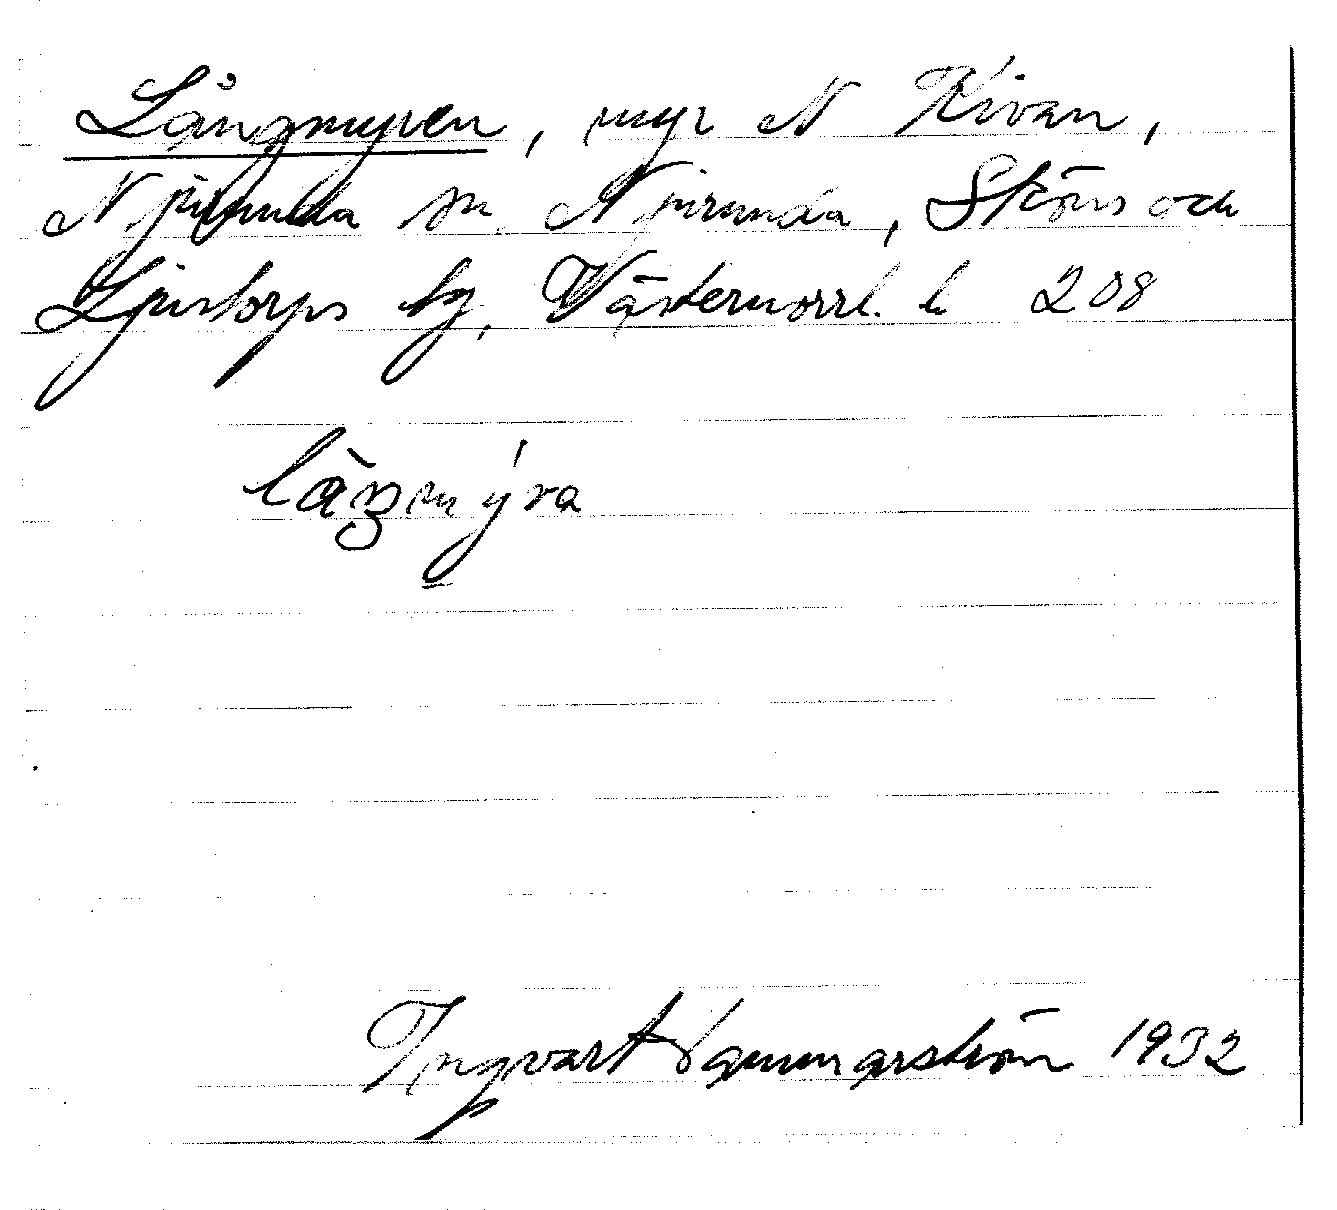 Långmyren, myr N Kivan,
Njurunda sn. Njurunda, Sköns och
Ljustorps tg, Västernorrl. l. 208
Ingvart Hammarström 1932